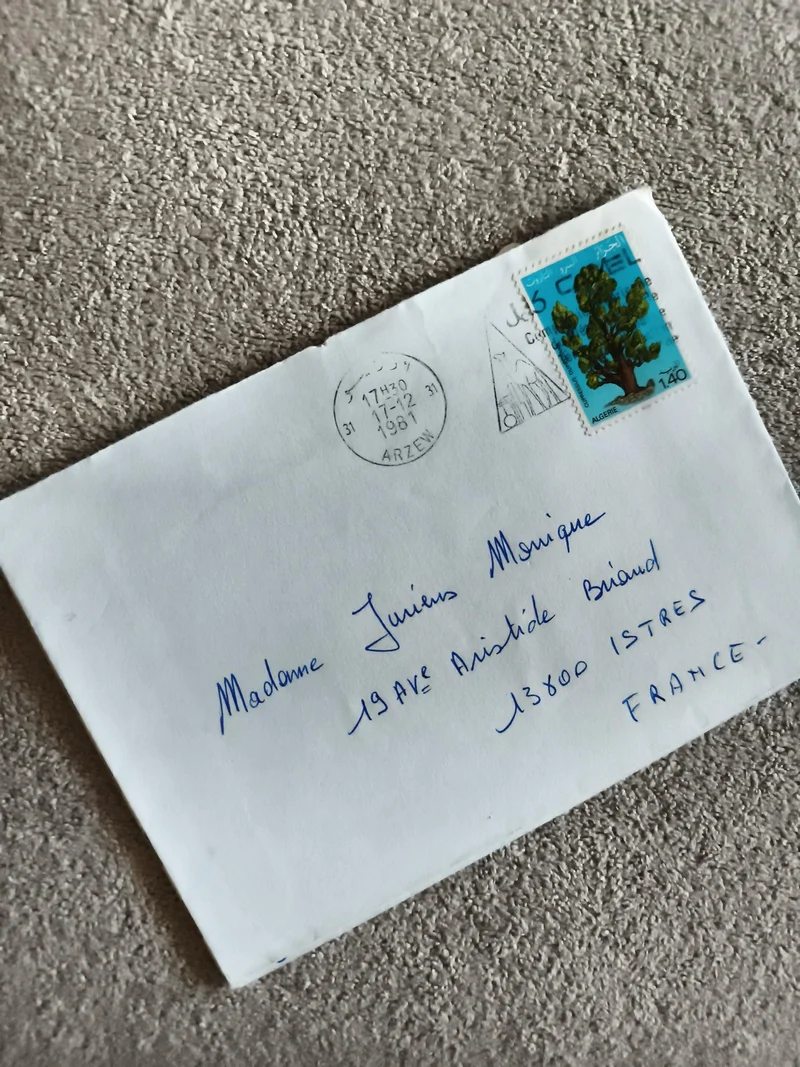 الجزائر
CAMEL
1.40
ALGERIE
17H30
31 17-12 31
1981
ARZEW
Madame Juriens Monique
19 AVe Aristide Briand
13800 ISTRES
FRANCE-